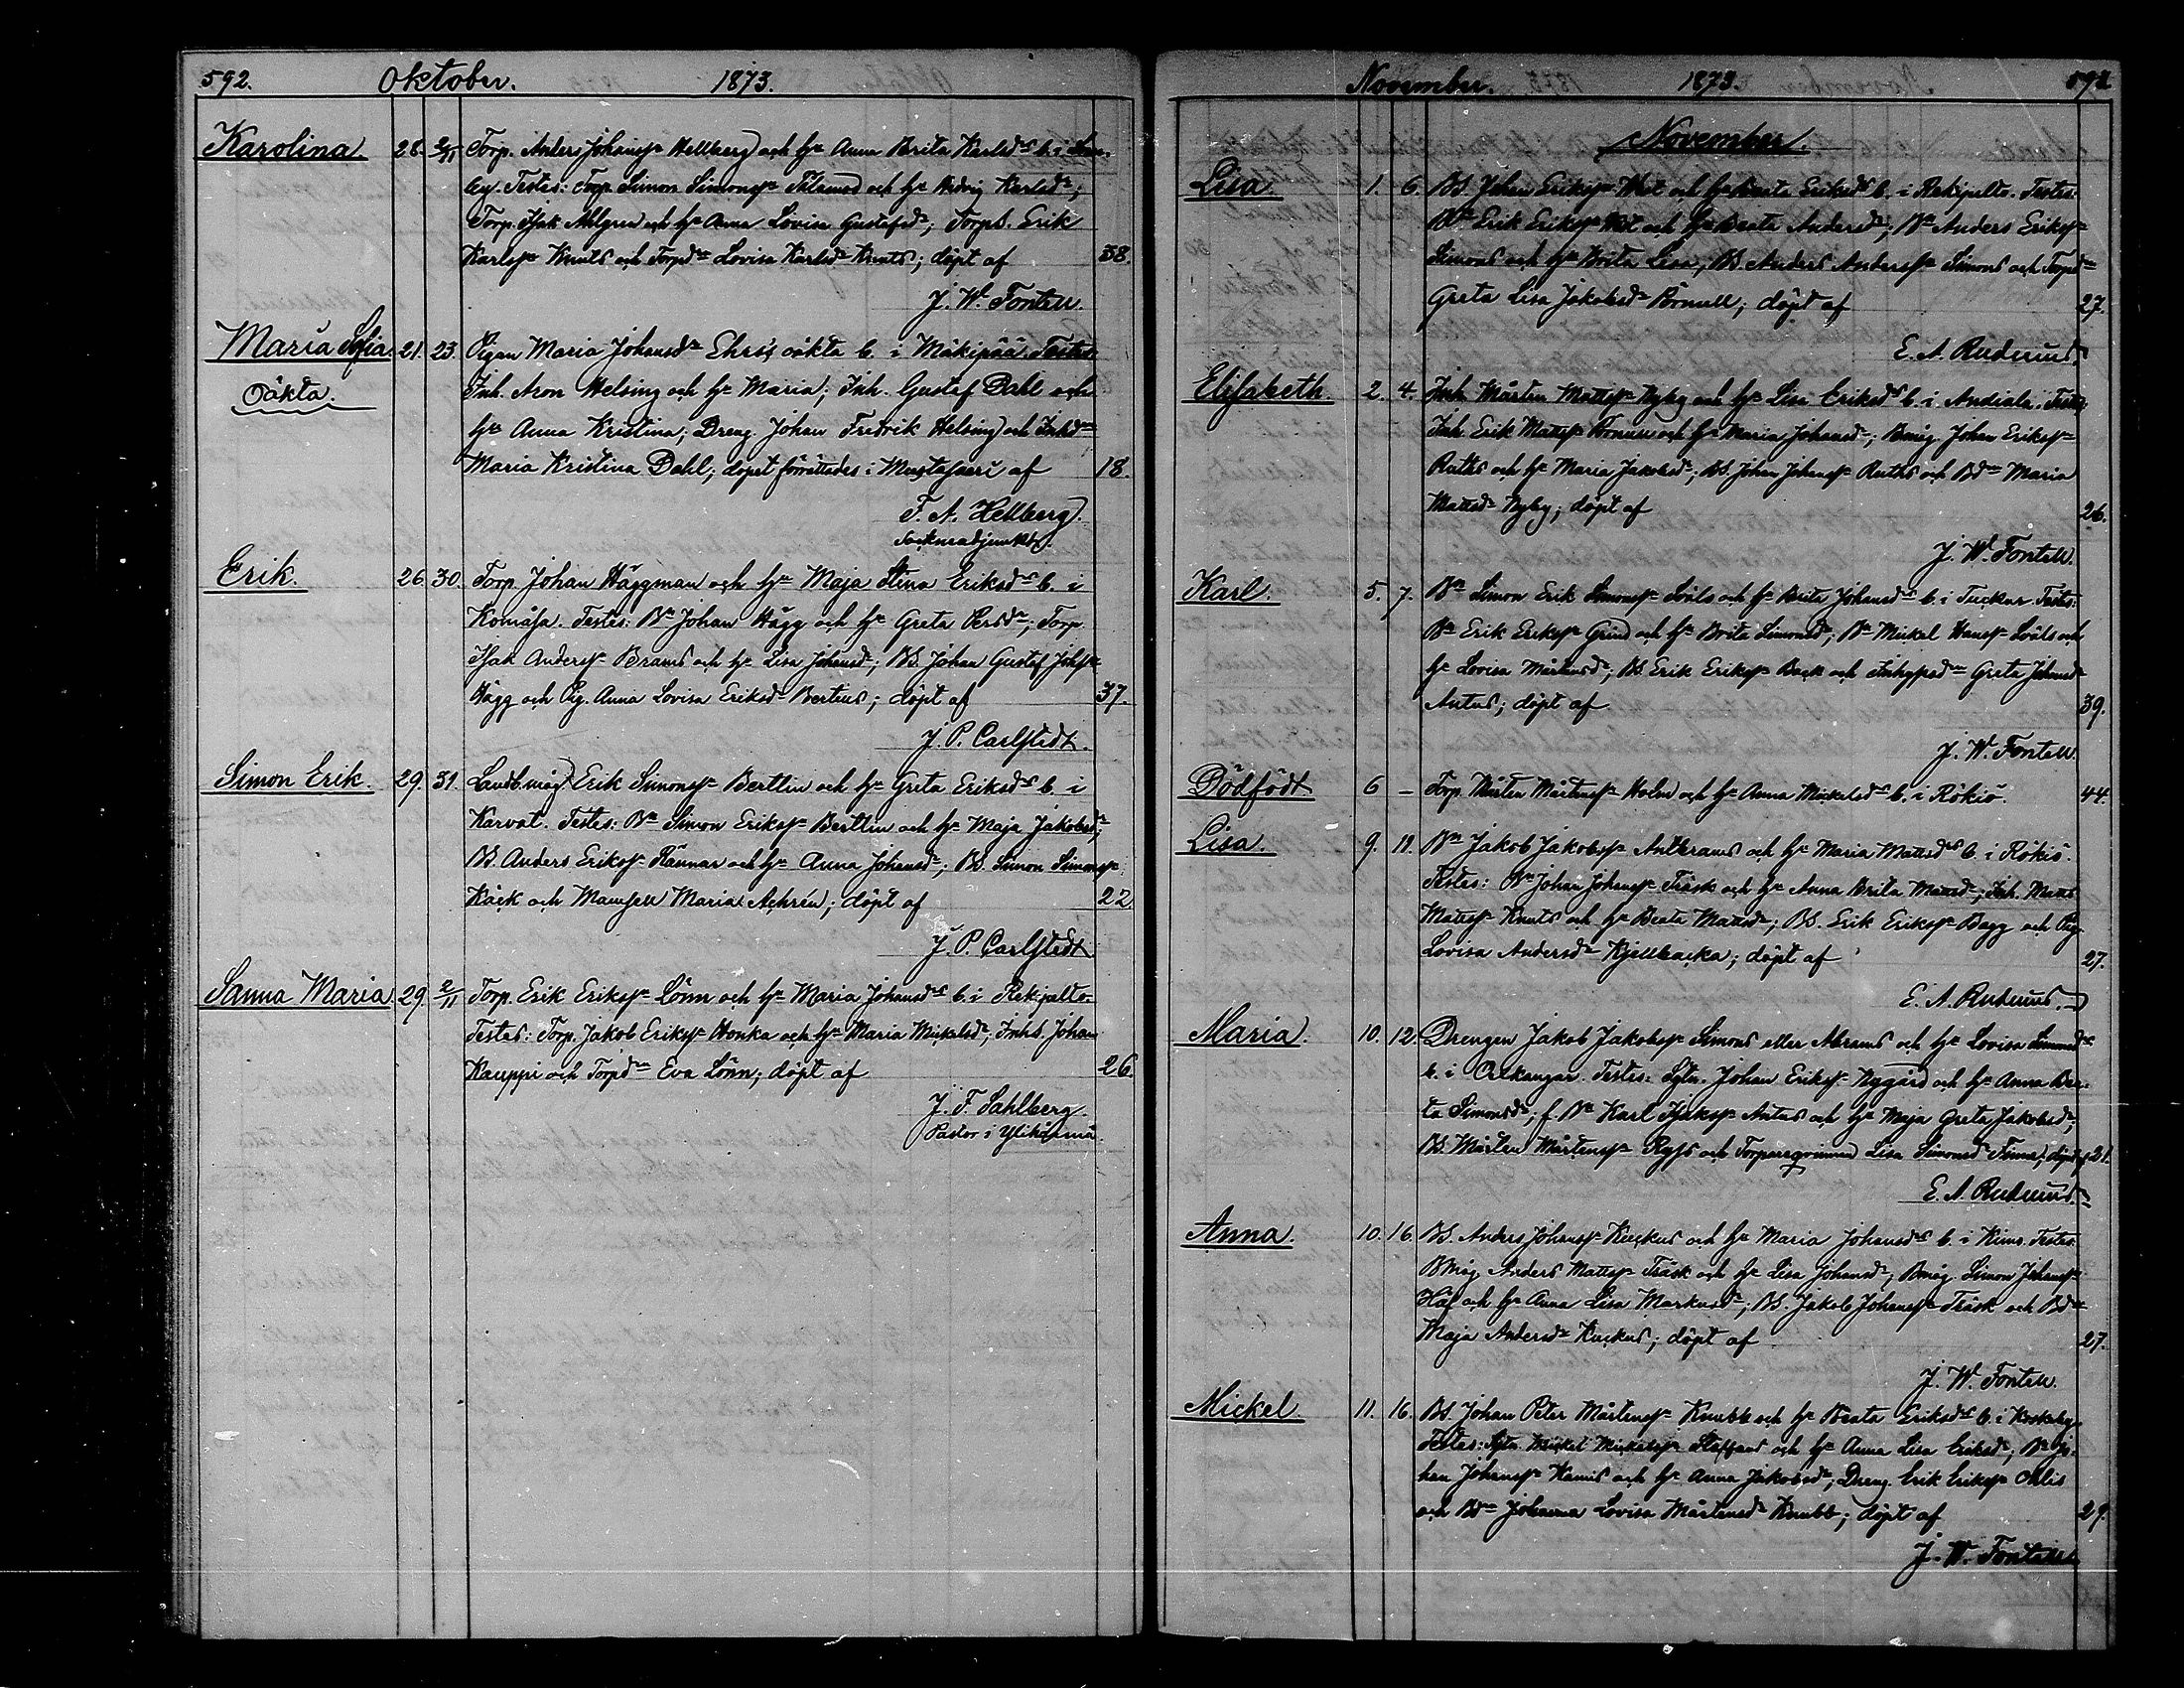 592. Oktober. 1873.
Karolina. 28. 2/11 Torp. Anders Johanss Hellberg och hu Anna Brita Karlsdr b. i
by. Testes: Torp. Simon Simonss och hu Hedvig Karlsdr;
Torp. Isak Ahlgren och hu Anna Lovisa Gustafsdr; Torps. Erik
Karlss Knuts och Torpdr Lovisa Karlsdr Knuts; döpt af 38.
J. W. Fontell.
Maria Sofia. 21. 23. Pigan Maria Johansdr Ehrs's oäkta b. i Mäkipää. Testes:
Oäkta. Inh. Aron Helsing och hu Maria; Inh. Gustaf Dahl och
hu Anna Kristina; Dreng. Johan Fredrik Helsing och Inhdr
Maria Kristina Dahl; dopet förrättades i Mustasaari af 18.
F. A. Hellberg.
Sockneadjunkt.
Erik. 26. 30. Torp. Johan Häggman och hu Maja Stina Eriksdr b. i
Komåsa. Testes: Bn Johan Hägg och hu Greta Persdr; Torp.
Isak Anderss Brams och hu Lisa Johansdr; BS. Johan Gustaf Johss
Hägg och Pig. Anna Lovisa Eriksdr Bertus; döpt af 37.
J. P. Carlstedt.
Simon Erik. 29. 31. Landb.måg Erik Simonss Bertlin och hu Greta Eriksdr b. i
Karvat. Testes: Bn Simon Erikss Bertlin och hu Maja Jakobsdr;
BS. Anders Erikss Rännar och hu Anna Johansdr; BS. Simon Simonss
Käck och Mamsell Maria Achrén; döpt af 22.
J. P. Carlstedt
Sanna Maria 29. 2/11 Torp. Erik Erikss Lönn och hu Maria Johansdr b. i Rekipelto.
Testes: Torp. Jakob Erikss Honka och hu Maria Mickelsdr; Inhs. Johan
Kauppi och Torpdr Eva Lönn; döpt af 26.
J. F. Sahlberg.
Pastor i Ylihärmä.
November. 1873. 592
November.
Lisa. 1. 6. BS. Johan Erikss West och hu Beata Eriksdr b. i Rekipelto. Testes:
Bn Erik Erikss West och hu Beata Andersdr; Bn Anders Erikss
Simons och hu Brita Lisa; BS. Anders Anderss Simons och Torpdr
Greta Lisa Jakobsdr Bonull; döpt af 27.
E. A. Rudnäs
Elisabeth. 2. 4. Inh. Mårten Mattss Nyby och hu Lisa Eriksdr b. i Andiala. Testes:
Inh. Erik Mattss och hu Maria Johansdr; Bmåg. Johan Erikss
Ruths och hu Maria Jakobsdr; BS. Johan Johanss Ruths och Bdr Maria
Mattsdr Nyby; döpt af 26.
J. W. Fontell.
Karl. 5. 7. Bn Simon Erik Simonss Löäls och hu Brita Johansdr b. i Tuckur. Testes:
Bn Erik Erikss Grind och hu Brita Simonsdr; Bn Mickel Hanss Löäls och
hu Lovisa Mårtensdr; BS. Erik Erikss Back och Inhypsdr Greta Johansdr
Antus; döpt af 39.
J. W. Fontell.
Dödfödt 6 – Torp. Mårten Mårtenss Holm och hu Anna Mickelsdr b. i Rökiö. 44.
Lisa. 9. 11. Bn Jakob Jakobss Antbrams och hu Maria Mattsdr b. i Rökiö.
Testes: Bn Johan Johanss Träsk och hu Anna Brita Mattsdr; Inh. Matts
Mattss Knuts och hu Beata Mattsdr; BS. Erik Erikss Bagg och Pig.
Lovisa Andersdr Kjellbacka; döpt af 27.
E. A. Rudnäs.
Maria. 10. 12. Drengen Jakob Jakobss Simons eller Abrams och hu Lovisa Simonsdr
b. i Oxkangar. Testes: Sytn. Johan Erikss Nygård och hu Anna Bea-
ta Simonsdr; f. Bn Karl Isakss Antus och hu Maja Greta Jakobsdr;
BS. Mårten Mårtenss Ryss och Torpareqvinnan Lisa Simonsdr Finne; döpt af 21.
E. A. Rudnäs.
Anna. 10. 16. BS. Anders Johanss Kuckus och hu Maria Johansdr b. i Kimo. Testes:
Bmåg Anders Mattss Träsk och hu Lisa Johansdr; Bmåg. Simon Johanss
Haf och hu Anna Lisa Markusdr; BS. Jakob Johanss Träsk och Bdr
Maja Andersdr Kuckus; döpt af 27.
J. W. Fontell.
Mickel. 11. 16. BS. Johan Peter Mårtenss Knubb och hu Beata Eriksdr b. i Koskeby.
Testes: Sytn. Mickel Mickelss Staffans och hu Anna Lisa Eriksdr; Bn Jo-
han Johanss Hannis och hu Anna Jakobsdr; Dreng. Erik Erikss Ohlis
och Bdr Johanna Lovisa Mårtensdr Knubb; döpt af 29.
J. W. Fontell.